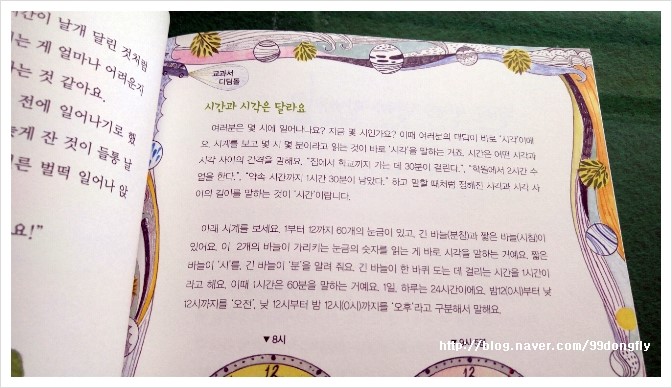 간이 날개 달린 것처럼
는 게 얼마나 어려운지
는 것 같아요.
전에 일어나기로 했
게 잔 것이 들통 날
른 벌떡 일어나 앉
요!"
교과서
디딤돌
시간과 시각은 달라요
여러분은 몇 시에 일어나나요? 지금 몇 시인가요? 이때 여러분의 대답이 바로 '시각'이에
요. 시계를 보고 몇 시 몇 분이라고 읽는 것이 바로 '시각'을 말하는 거죠. 시간은 어떤 시각과
시각 사이의 간격을 말해요. "집에서 학교까지 가는 데 30분이 걸린다.", "학원에서 2시간 수
업을 한다.", "약속 시간까지 1시간 30분이 남았다." 하고 말할 때처럼 정해진 시각과 시각 사
이의 길이를 말하는 것이 '시간'이랍니다.
아래 시계를 보세요. 1부터 12까지 60개의 눈금이 있고, 긴 바늘(분침)과 짧은 바늘(시침)이
있어요. 이 2개의 바늘이 가리키는 눈금의 숫자를 읽는 게 바로 시각을 말하는 거예요. 짧은
바늘이 '시'를, 긴 바늘이 '분'을 알려 줘요. 긴 바늘이 한 바퀴 도는 데 걸리는 시간을 1시간이
라고 해요. 이때 1시간은 60분을 말하는 거예요. 1일, 하루는 24시간이에요. 밤 12(0)시부터 낮
12시까지를 '오전', 낮 12시부터 밤 12시(0)시까지를 '오후'라고 구분해서 말해요.
▼8시
12
12
http://blog.naver.com/99dongfly